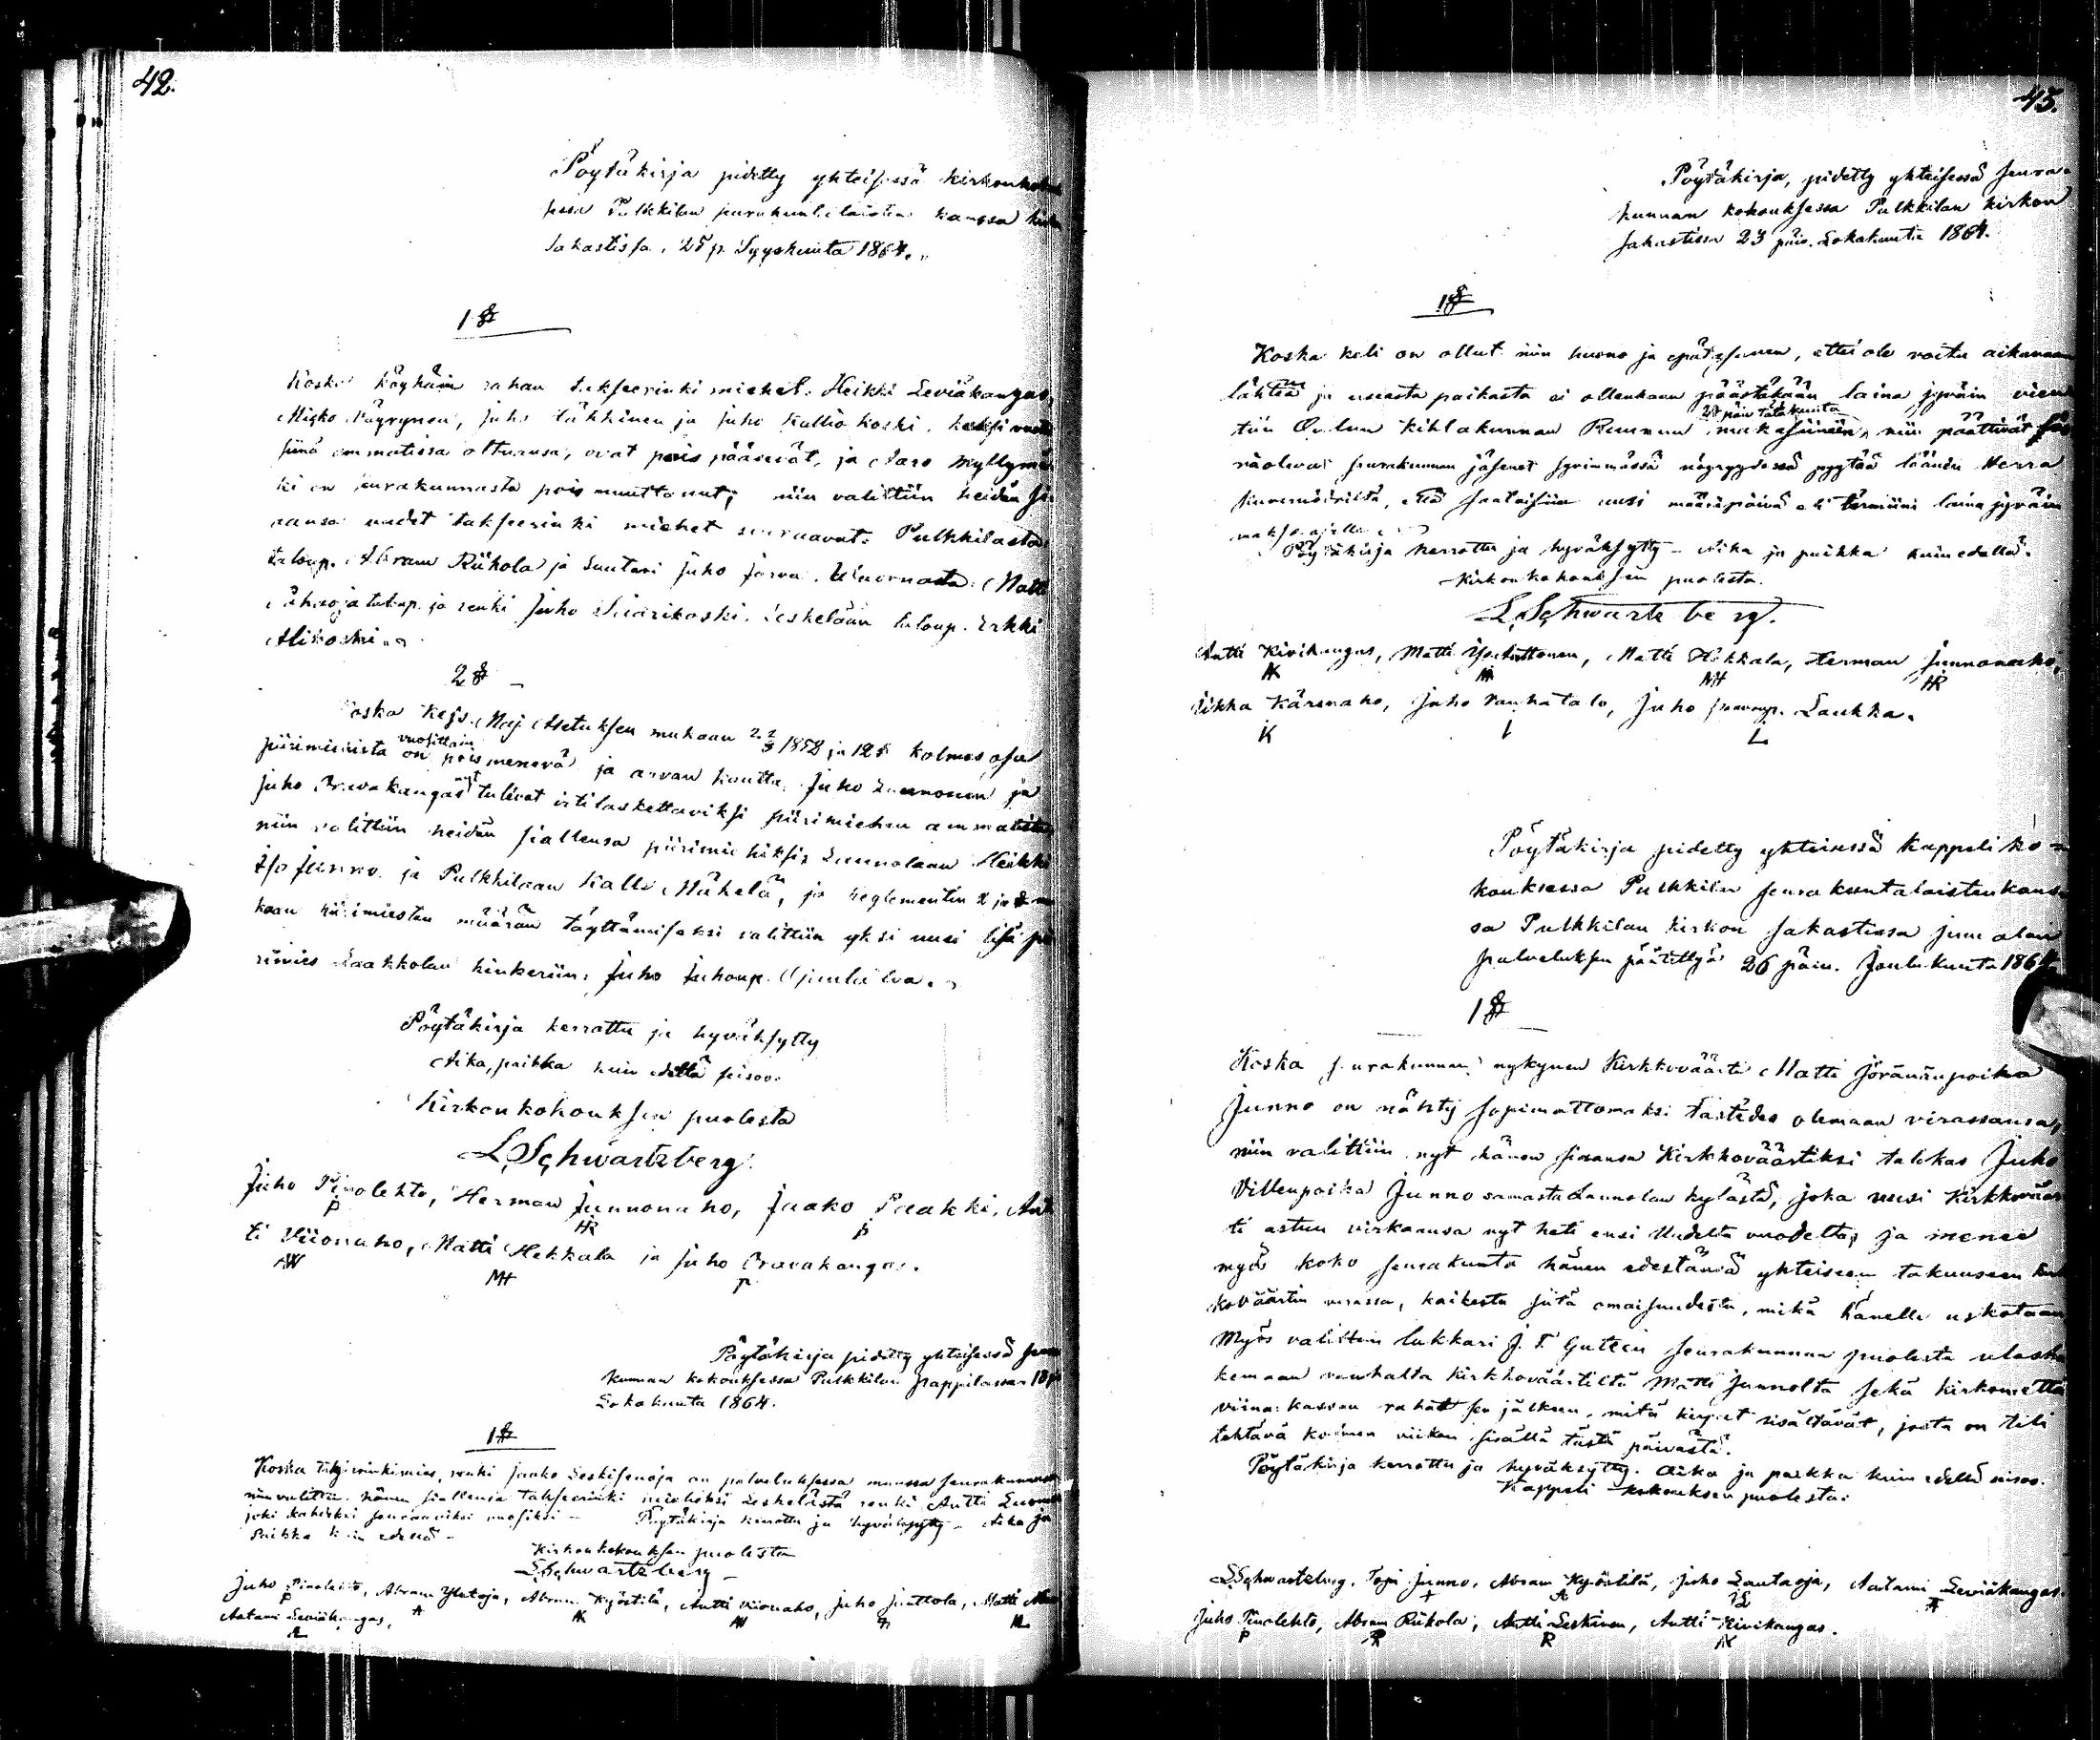 42.
Pöytäkirja pidetty yhteisessä kirkonkokouk
sessa Pulkkilan seurakuntalaisten kanssa
Sakastissa, 25 p. Syyskuuta 1864.
1 §
Koska köyhäin rahan takseerinki miehet: Heikki Leviäkangas,
Mikko Näyrynen, Juho Lähkinen ja Juho Kalliokoski, kaksi vuotta
siinä ammatissa oltuansa, ovat pois pääsevät, ja Aaro Myllymä
ki on seurakunnasta pois muuttanut; niin valittiin heidän si
aansa uudet takseerinki miehet seuraavat: Pulkkilasta
taloup. Abram Riikola ja Suutari Juho Jarva. Matti
Ahaoja taloup. ja renki Juho Saarikoski. Leskelään taloup. Erkki
Alikoski.
2 §
Koska Keis. Maj. Asetuksen mukaan 1852 ja 12 § kolmas osa
piirimiehistä vuosittain on pois menevä ja arvan kautta, Juho Lannonen ja
Juho Oravakangas nyt tulivat irtilaskettaviksi piirimiehen ammatista
niin valittiin heidän siallensa piirimiehiksi, Lannolaan Heikki
Junno ja Pulkkilaan Kalle Mähelä, ja Reglementin
kaan piirimiesten määrän täyttämiseksi valittiin yksi uusi lisä pii
rimies Laakkolan kinkeriin: Juho Juhonp.
Pöytäkirja kerrattu ja hyväksytty
Aika, paikka kuin edellä seisoo.
Kirkonkokouksen puolesta
L. Schwartzberg.
Juho Pinolehto, Herman Junnonaho, Jaako Paakki, Ant
P HR P
ti Viionaho, Matti Hekkala ja Juho Oravakangas.
AW MH P
Pöytäkirja pidetty yhteisessä seura
kunnan kokouksessa Pulkkilan pappilassa 18
Lokakuuta 1864.
1 §
Koska renki Jaako on palveluksessa muussa seurakunnassa
niin valittiin hänen siallensa takseerinki mieheksi Leskelästä renki Antti
joki kahdeksi seuraavaksi vuodeksi – Pöytäkirja kerrattu ja hyväksytty – Aika ja
Paikka kuin edellä –
Kirkonkokouksen puolesta
L. Schwartzberg –
Juho Pinolehto, Abram Ylutoja, Abram Kyöstilä, Antti Viionaho, Juho Junttola, Matti
P A AK AW
Aatami Leviäkangas,
45.
Pöytäkirja, pidetty yhteisessä seura-
kunnan kokouksessa Pulkkilan kirkon
sakastissa 23 päiv. Lokakuuta 1864.
1 §
Koska keli on ollut niin huono ja epätasanen, ettei ole voitu aikanaan
lähteä ja useasta paikasta ei ollenkaan päästäkään laina jyväin vien
tiin Oulun kihlakunnan Ruunun makasiiniin, 28 päiv tätä kuuta niin päättivät
näolevat seurakunnan jäsenet syvimmässä nöyryydessä pyytää läänin Herra
kuvernööriltä, että saataisiin uusi määräpäivä eli termiini laina jyväin
maksoajalle
Pöytäkirja kerrattu ja hyväksytty – Aika ja paikka kuin edellä.
Kirkonkokouksen puolesta.
L. Schwartzberg.
Antti Kivikangas, Matti, Matti Hekkala, Herman Junnonaho,
AK MH HR
Kärenaho, Juho Rauhatalo, Juho Laukka.
K L
Pöytäkirja pidetty yhteisessä kappeli ko-
kouksessa Pulkkilan seurakuntalaisten kans
sa Pulkkilan kirkon sakastissa jumalan
palveluksen päätettyä 26 päiv. Joulukuuta 1864.
1 §
Koska seurakunnan nykynen Kirkkoväärti Matti Jöranänpoika
Junno on nähty sopimattomaksi tästedes olemaan virassansa,
niin valittiin nyt hänen siaansa Kirkkoväärtiksi talokas Juho
Villenpoika Junno samasta Lannolan kylästä, joka uusi Kirkkoväär
ti astuu virkaansa nyt heti ensi Uudelta vuodelta; ja menee
myös koko seurakunta hänen edestänsä yhteiseen takuuseen kirk
koväärtin virassa, kaikesta siitä omaisuudesta, mikä hänelle uskotaan
Myös valittiin lukkari J. F. Gutlein seurakunnan puolesta ulosha
kemaan vanhalta kirkkoväärtiltä Matti Junnolta sekä kirkon että
viina-kassan rahat sen jälkeen, mitä kirjat sisältävät, josta on tili
tehtävä kolmen viikon sisällä tästä päivästä.
Pöytäkirja kerrattu ja hyväksytty. Aika ja paikka kuin edellä seisoo.
Kappeli kokouksen puolesta:
L. Schwartzberg, Topi Junno, Abram Kyöstilä, Juho Lautaoja, Aatami Leviäkangas.
Juho Pinolehto, Abram Riikola, Antti Leskinen, Antti Kivikangas.
P R R AK